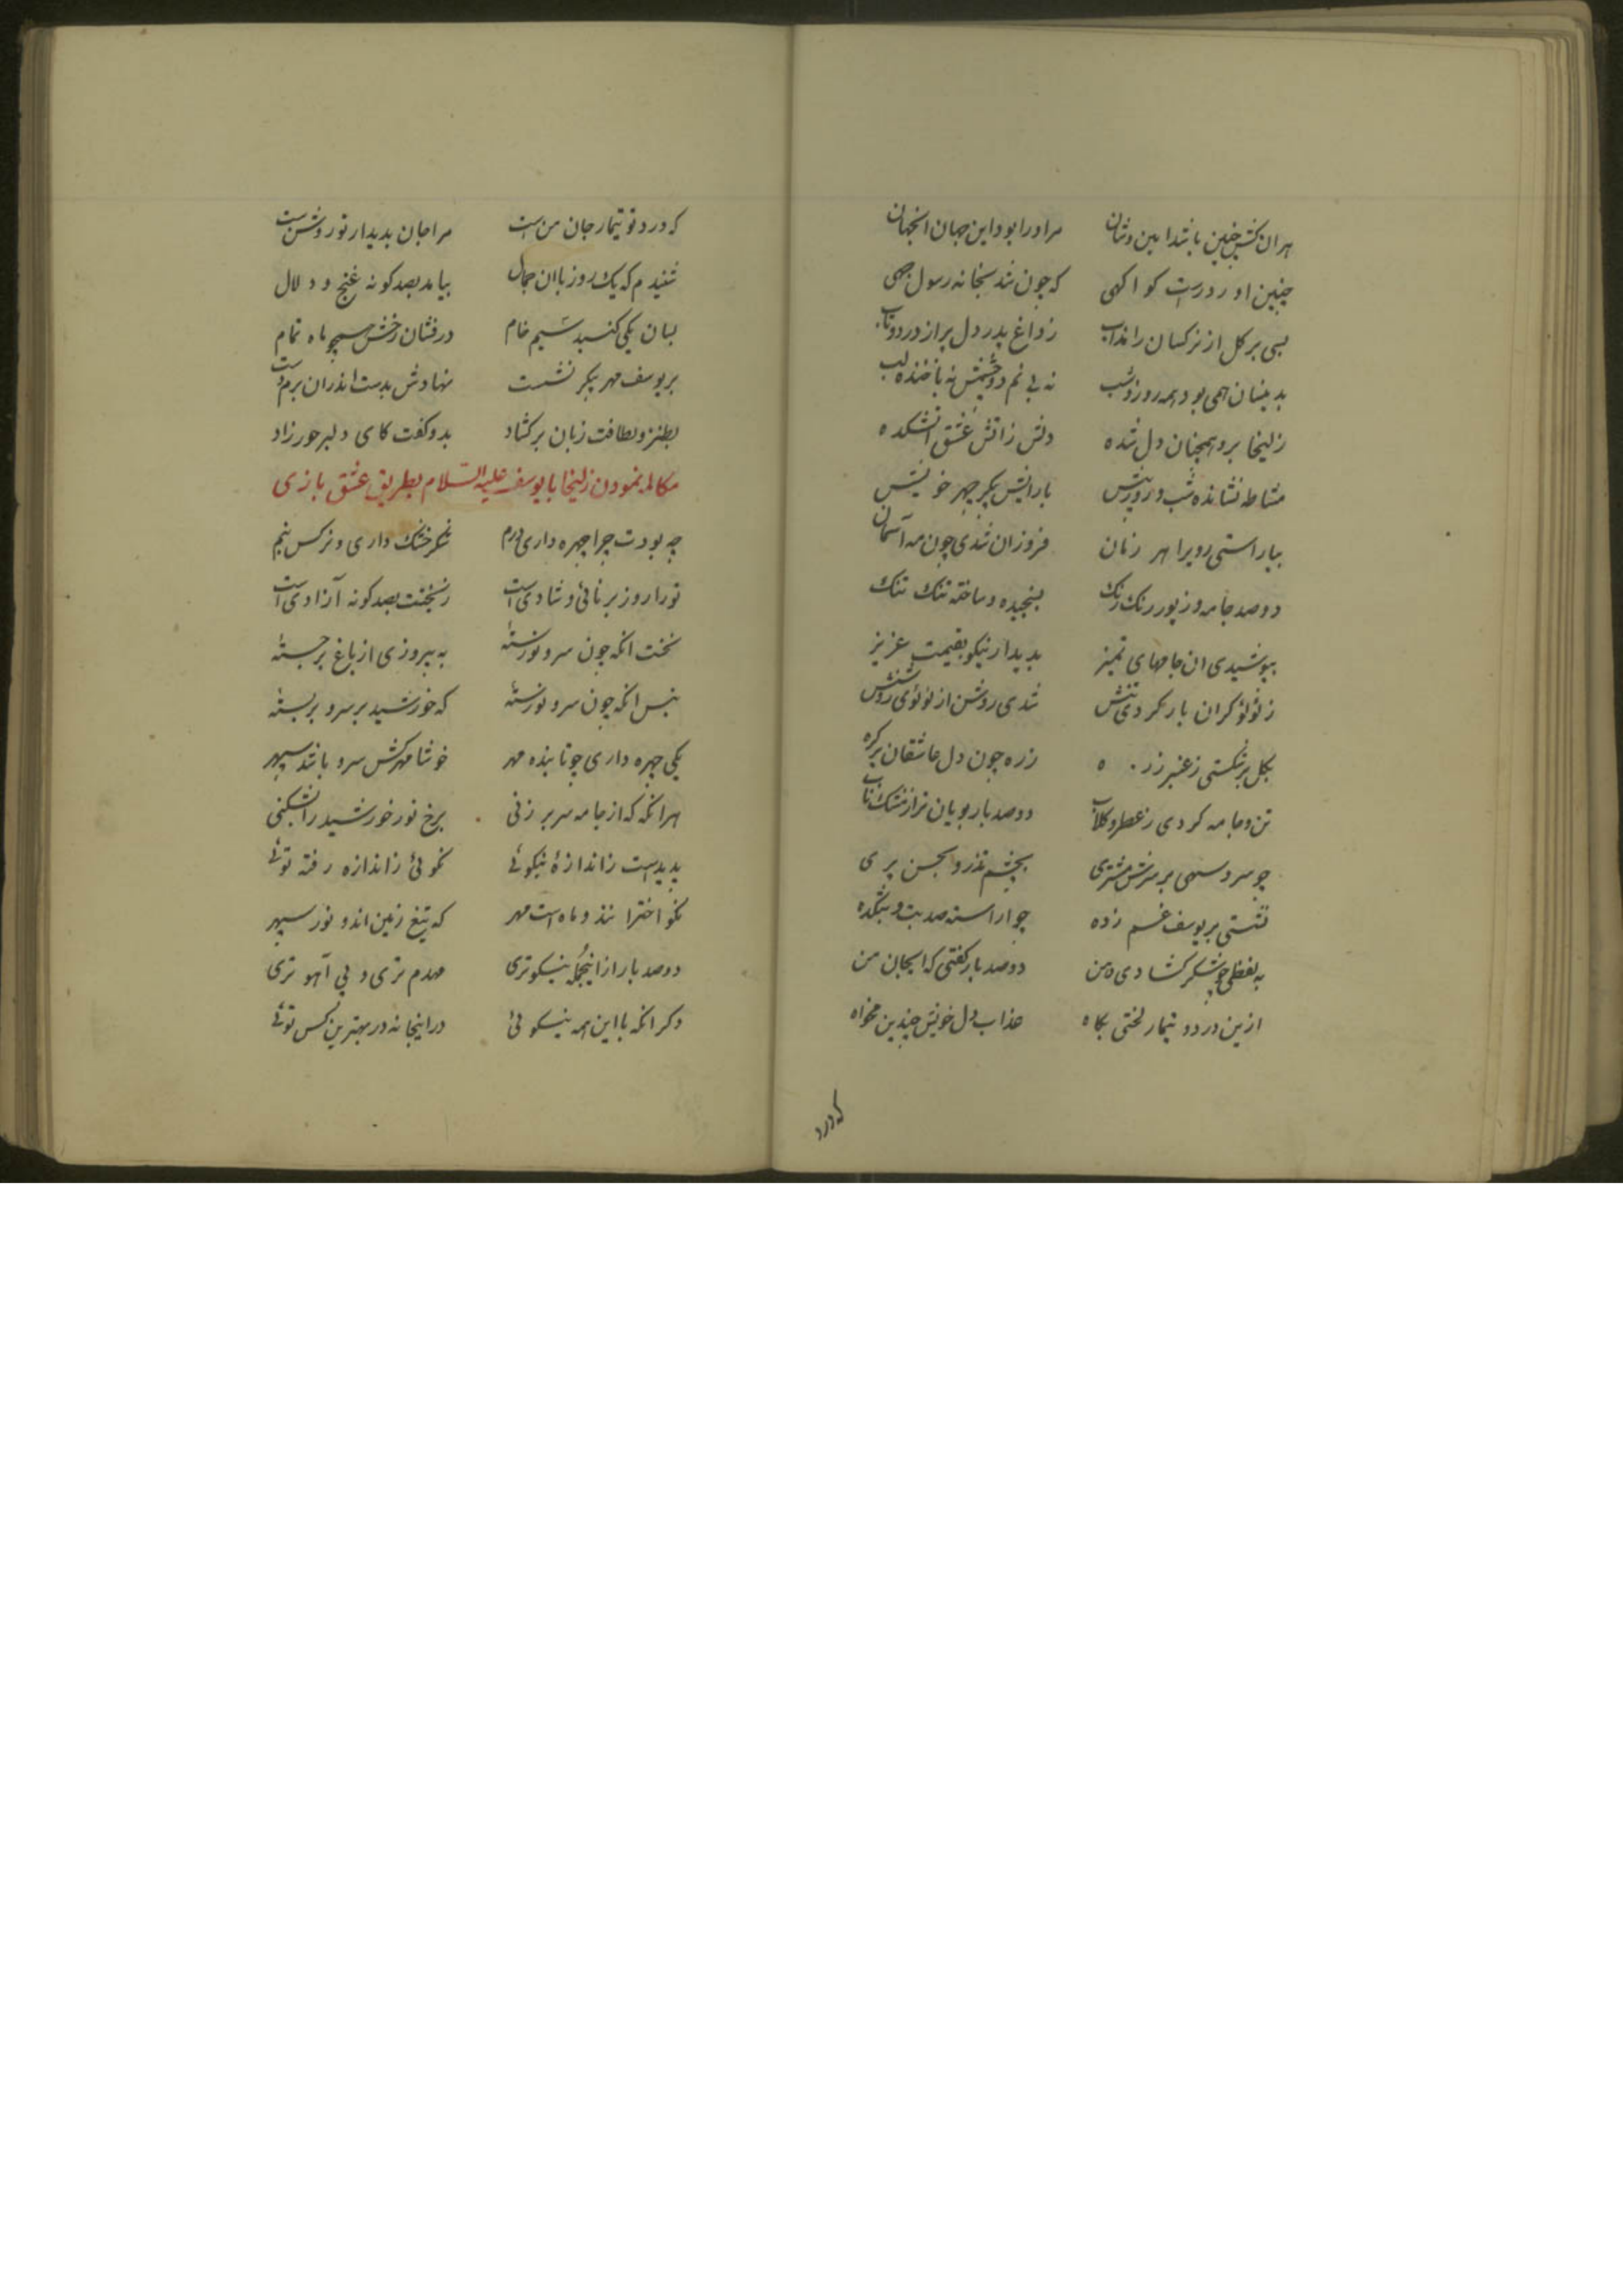 هران کش چنین باشد ایین و شان مرا و را بود این جهان انجهان
چنین اورد درست کو اکهی که چون شد بخانه رسول مهی
بسی بر کل از نرکسان راند اب ز داغ پدر دل پر از درد و تاب
بدینسان همی بود همه روز و شب نه بی نم دو چشمش نه با خنده لب
زلیخا برو همچنان دل شده دلش زاتش عشق اتشکده
مشاطه نشانده شب و روز پیش بارایش پیکر چهر خویش
بیاراستی رویرا هر زمان فروزان شدی چون مه آسمان
دو صد جامه و زیور رنک رنک بسنجیده و ساخته تنک تنک
بپوشیدی ان جامهای تمیز بدیدار نیکو بقیمت عزیز
ز لؤلؤ کران بار کردی تنش شدی روشن از لؤلؤی روشنش
بکل برشکستی ز عنبر زره زره چون دل عاشقان پر کره
تن و جامه کردی ز عطر و کلاب دو صد بار بویان تر از مشک ناب
چو سرو سهی بر سرش مشتری بچشم تذرو و بحسن پری
نشستی بر یوسف غم زده چو اراسته صد بت و بتکده
به لفظی چو شکر کشادی دهن دو صد بار کفتی که ایجان من
ازین درد و تیمار لختی بکاه عذاب دل خویش چندین مخواه
که درد
که درد تو تیمار جان من است مرا جان بدیدار تو روشن است
شنیدم که یک روز با ان جمال بیامد بصد کونه غنج و دلال
بسان یکی کنبد سیم خام درفشان رخش همچو ماه تمام
بر یوسف مهر پیکر نشست نهادش بدست اندران نرم دست
بطنز و لطافت زبان بر کشاد بدو کفت کای دلبر حور زاد
مکالمه نمودن زلیخا با یوسف علیه السلام بطریق عشق بازی
چه بودت چرا چهره داری درم شکر خشک داری و نرکس بنم
تو را روز برنائی و شادی است ز بختت بصد کونه آزادی است
نخست انکه چون سرو نو رستهٔ به پیروزی از باغ بر جستهٔ
پس انکه چون سرو نو رستهٔ که خورشید بر سرو بر بستهٔ
یکی چهره داری چو تابنده مهر خوشا مهر کش سرو باشد سپهر
هر انکه که از جامه سر بر زنی برخ نور خورشید را بشکنی
پدیدست ز اندازهٔ نیکوئی نکوئی ز اندازه رفته توئی
نکو اخترانند و ماه است و مهر که تیغ زمین اند و نور سپهر
دو صد بار از اینجمله نیکوتری مهدم تری و بی آهو تری
دکر انکه با این همه نیکوئی در اینجانه در بهترین کس توئی